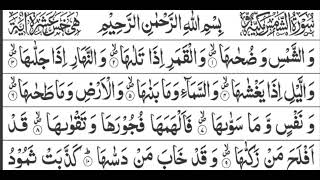 سُوْرَةُ الشَّمْسِ مَكِّيَّةٌ بِسْمِ اللهِ الرَّحْمٰنِ الرَّحِيْمِ وَّهِيَ خَمْسَ عَشْرَةَ اٰيَةً
وَ الشَّمْسِ وَ ضُحٰىهَا ۪ۙ۱ وَ الْقَمَرِ اِذَا تَلٰىهَا ۪ۙ۲ وَ النَّهَارِ اِذَا جَلّٰىهَا ۪ۙ۳
وَ الَّيْلِ اِذَا يَغْشٰىهَا ۪ۙ۴ وَ السَّمَآءِ وَ مَا بَنٰىهَا ۪ۙ۵ وَ الْاَرْضِ وَ مَا طَحٰىهَا ۪ۙ۶
وَ نَفْسٍ وَّ مَا سَوّٰىهَا ۪ۙ۷ فَاَلْهَمَهَا فُجُوْرَهَا وَ تَقْوٰىهَا ۪ۙ۸ قَدْ
اَفْلَحَ مَنْ زَكّٰىهَا ۪ۙ۹ وَ قَدْ خَابَ مَنْ دَسّٰىهَا ؕ۱۰ كَذَّبَتْ ثَمُوْدُ